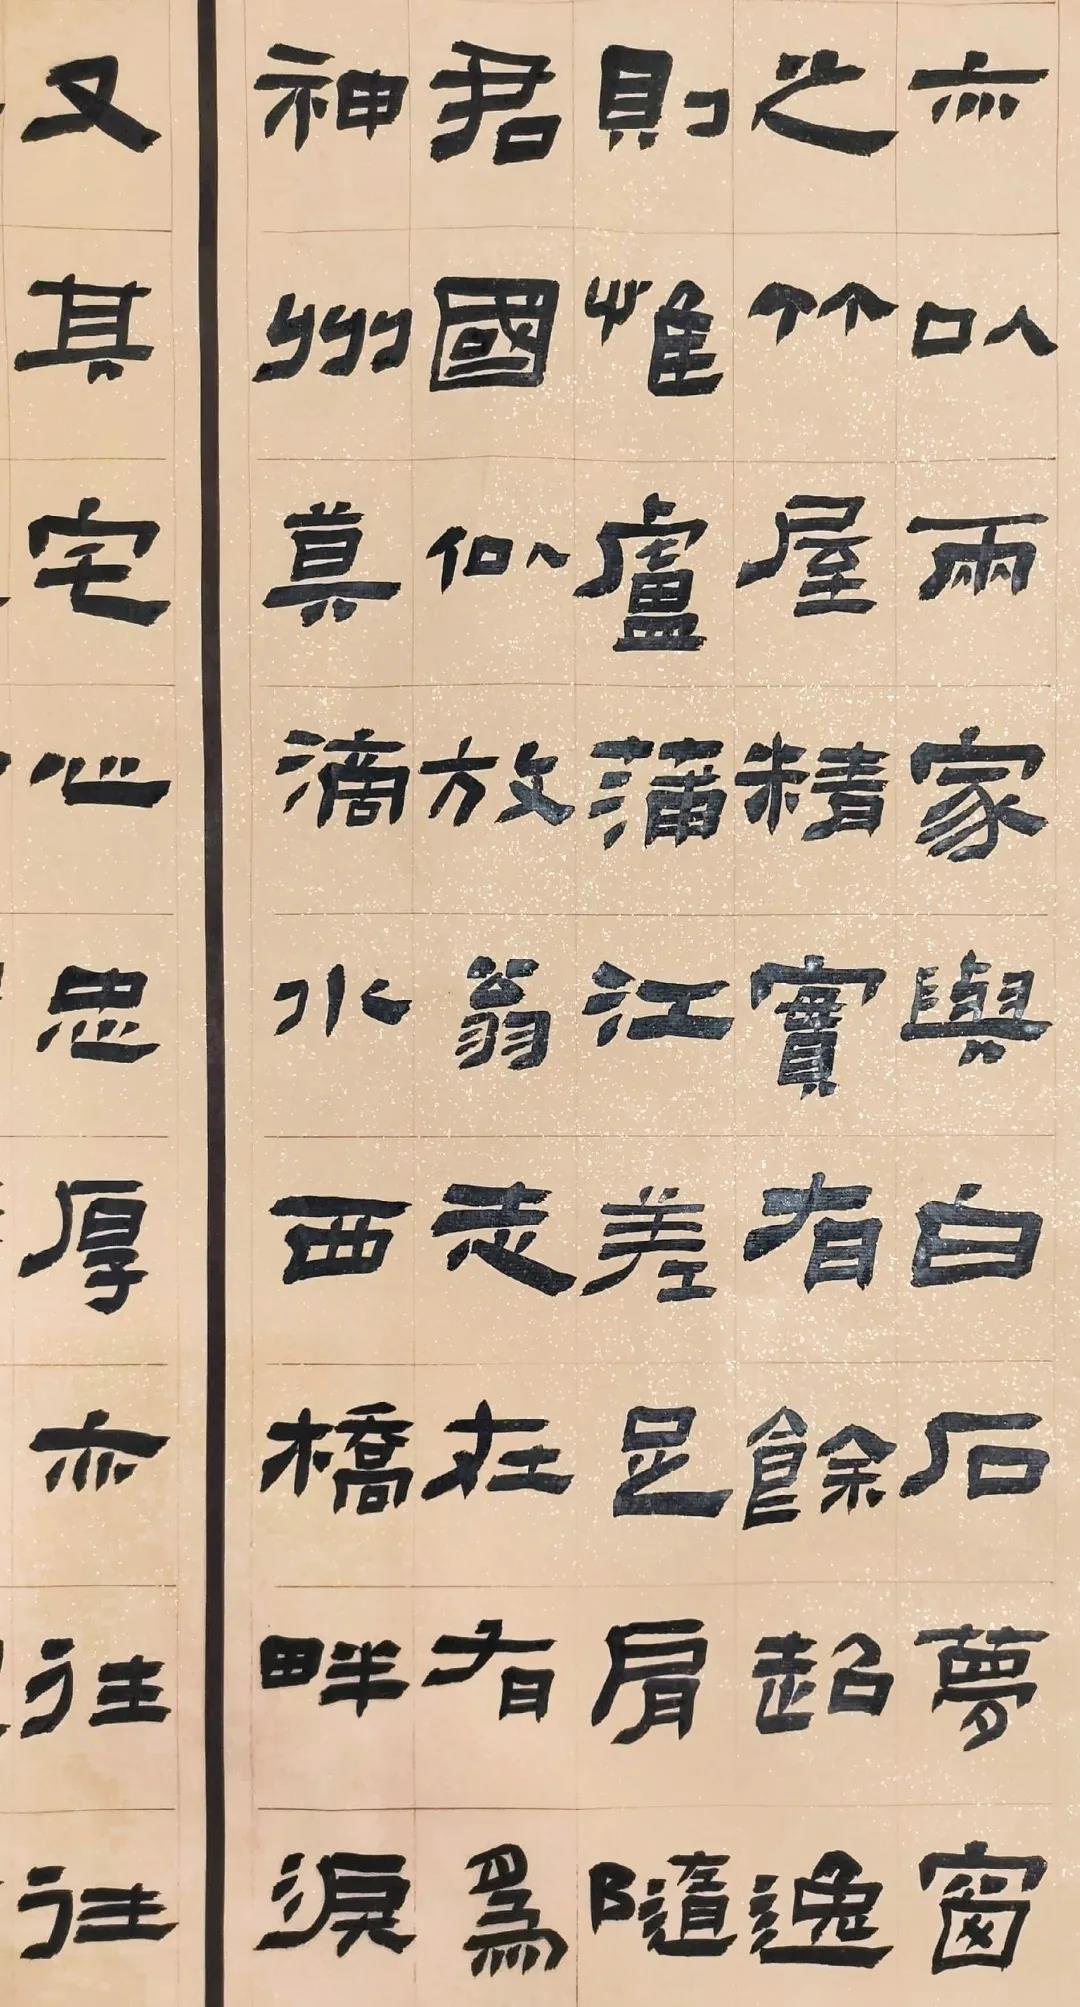 亦以雨家與白石夢窗
之竹屋精實有餘超逸
則惟盧蒲江差足肩隨
君國似放翁走在有為
神州真滴水西橋畔淚
又其宅心忠厚亦往往